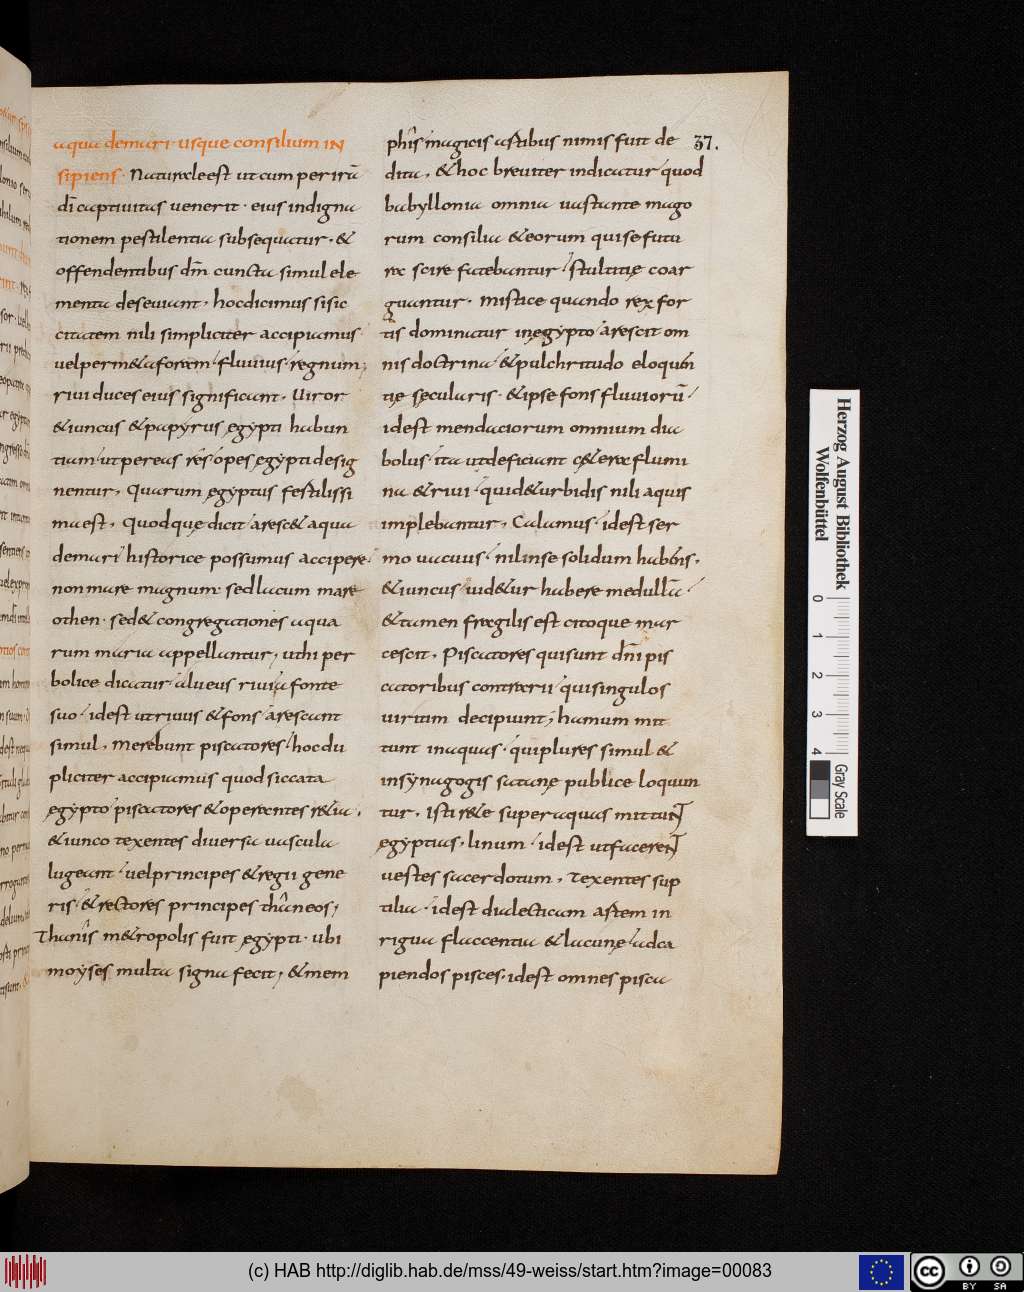 aqua demari· usque consilium IN
sipiens· Naturale est ut cum per irā
dī captivitas venerit· eius indigna
tionem pestilentia subsequatur· &
offendentibus dm̄ cuncta simul ele
menta deseviant· hoc dicimus si sic
citatem nili simpliciter accipiamus
vel per m&aforam fluvius regnum;
rivi duces eius significant· Viror
& iuncus & papyrus ęgypti habun
tiam ut per eas res opes ęgypti desig
nentur, Quarum ęgyptus fertilissi
ma est, Quodque dicit aresc& aqua
de mari historice possumus accipere
non mare magnum sed lacum mare
othen· sed & congregationes aqua
rum maria appellantur, uthi per
bolice dicatur alveus rivi a fonte
suo idest ut rivus & fons arescant
simul, Merebunt piscatores hoc du
pliciter accipiamus quod siccata
ęgypto piscatores & operantes r&ia,
& iunco texentes diversa vascula
lugeant vel principes & regii gene
ris & rectores principes thaneos;
Thanis m&ropolis fuit ęgypti· ubi
moyses multa signa fecit, & mem
37.
phis magicis artibus nimis fuit de
dita, & hoc breviter indicatur quod
babyllonia omnia vastante mago
rum consilia & eorum qui se futu
ra scire fatebantur stultitię coar
guantur· Mistice quando rex for
tis dominatur in ęgypto arescit om
nis doctrina & pulchritudo eloquen
tię sęcularis· & ipse fons fluviorū
idest mendaciorum omnium dia
bolus ita ut deficiant & flumi
na & rivi quid& urbidis nili aquis
implebantur, Calamus idest ser
mo vacuus nil in se solidum habens,
& iuncus vid&ur habere medullā
& tamen fragilis est citoque mar
cescit, Piscatores qui sunt dn̄i pis
catoribus contrarii qui singulos
viritim decipiunt; hamum mit
tunt in aquas· qui plures simul &
in synagogis satanę publice loquun
tur, Isti r&e super aquas mittunt
ęgyptias, linum idest ut facerent
vestes sacerdotum, Texentes sup
tilia· idest dialecticam artem in
rigua flaccentia & lacunę ad ca
piendos pisces· idest omnes pisca
Herzog August Bibliothek
Wolfenbüttel
0 1 2 3 4
Gray Scale
(c) HAB http://diglib.hab.de/mss/49-weiss/start.htm?image=00083
cc BY SA